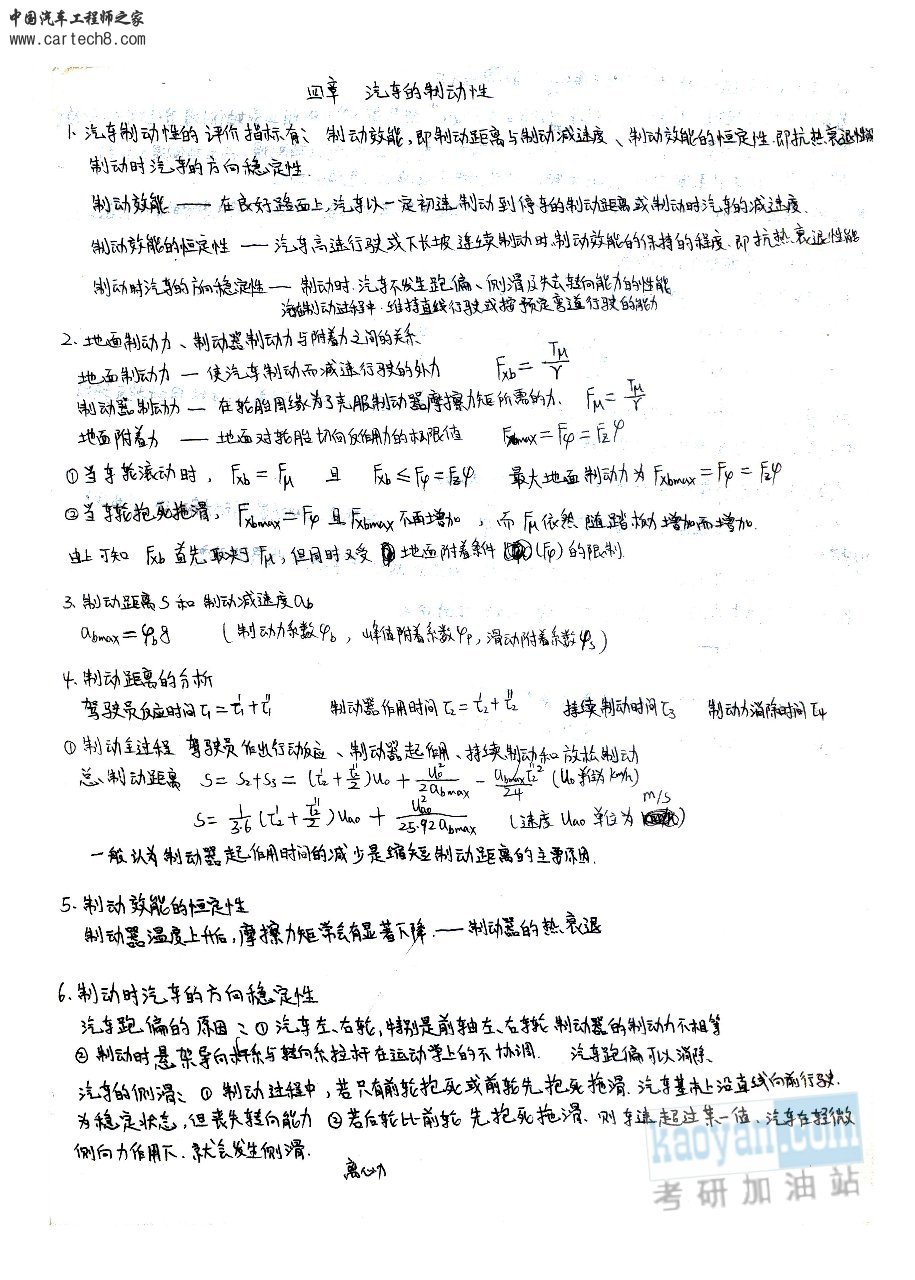 中国汽车工程师之家
www.cartech8.com
四章 汽车的制动性
1、汽车制动性的评价指标有: 制动效能,即制动距离与制动减速度、制动效能的恒定性.即抗热衰退性能
制动时汽车的方向稳定性.
制动效能 —— 在良好路面上,汽车以一定初速制动到停车的制动距离或制动时汽车的减速度.
制动效能的恒定性 — 汽车高速行驶或下长坡连续制动时.制动效能的保持的程度.即抗热衰退性能
制动时汽车的方向稳定性 — 制动时.汽车不发生跑偏、侧滑及失去转向能力的性能
汽车在制动过程中.维持直线行驶或按预定弯道行驶的能力
2、地面制动力、制动器制动力与附着力之间的关系
地面制动力 — 使汽车制动而减速行驶的外力 Fxb = Tμ/r
制动器制动力 — 在轮胎周缘为了克服制动器摩擦力矩所需的力. Fμ = Tμ/r
地面附着力 —— 地面对轮胎切向反作用力的极限值 Fxbmax = Fφ = Fzφ
①当车轮滚动时, Fxb = Fμ 且 Fxb ≤ Fφ = Fzφ 最大地面制动力为 Fxbmax = Fφ = Fzφ
②当车轮抱死拖滑, Fxbmax = Fφ 且 Fxbmax 不再增加,而 Fμ 依然随踏板力增加而增加.
由上可知 Fxb 首先取决于 Fμ,但同时又受地面附着条件(Fφ)的限制.
3.制动距离S和制动减速度ab
abmax = φbg (制动力系数φb, 峰值附着系数φp,滑动附着系数φs)
4、制动距离的分析
驾驶员反应时间τ1 = τ1' + τ1'' 制动器作用时间τ2 = τ2' + τ2'' 持续制动时间τ3 制动力消除时间τ4
①制动全过程 驾驶员作出行动反应、制动器起作用、持续制动和放松制动
总制动距离 S = S2+S3 = (τ2' + τ2''/2)u0 + u0²/2abmax − abmaxτ2''²/24 (u0单位km/h)
S = 1/3.6 (τ2' + τ2''/2)ua0 + ua0²/25.92abmax (速度 ua0 单位为 m/s)
一般认为制动器起作用时间的减少是缩短制动距离的主要原因.
5、制动效能的恒定性
制动器温度上升后,摩擦力矩常会有显著下降. — 制动器的热衰退
6、制动时汽车的方向稳定性
汽车跑偏的原因: ①汽车左、右轮,特别是前轴左、右车轮制动器的制动力不相等
②制动时悬架导向杆系与转向系拉杆在运动学上的不协调. 汽车跑偏可以消除、
汽车的侧滑: ①制动过程中,若只有前轮抱死或前轮先抱死拖滑.汽车基本上沿直线向前行驶.
为稳定状态,但丧失转向能力 ②若后轮比前轮先抱死拖滑.则车速超过某一值、汽车在轻微
侧向力作用下.就会发生侧滑.
离心力
kaoyan.com
考研加油站